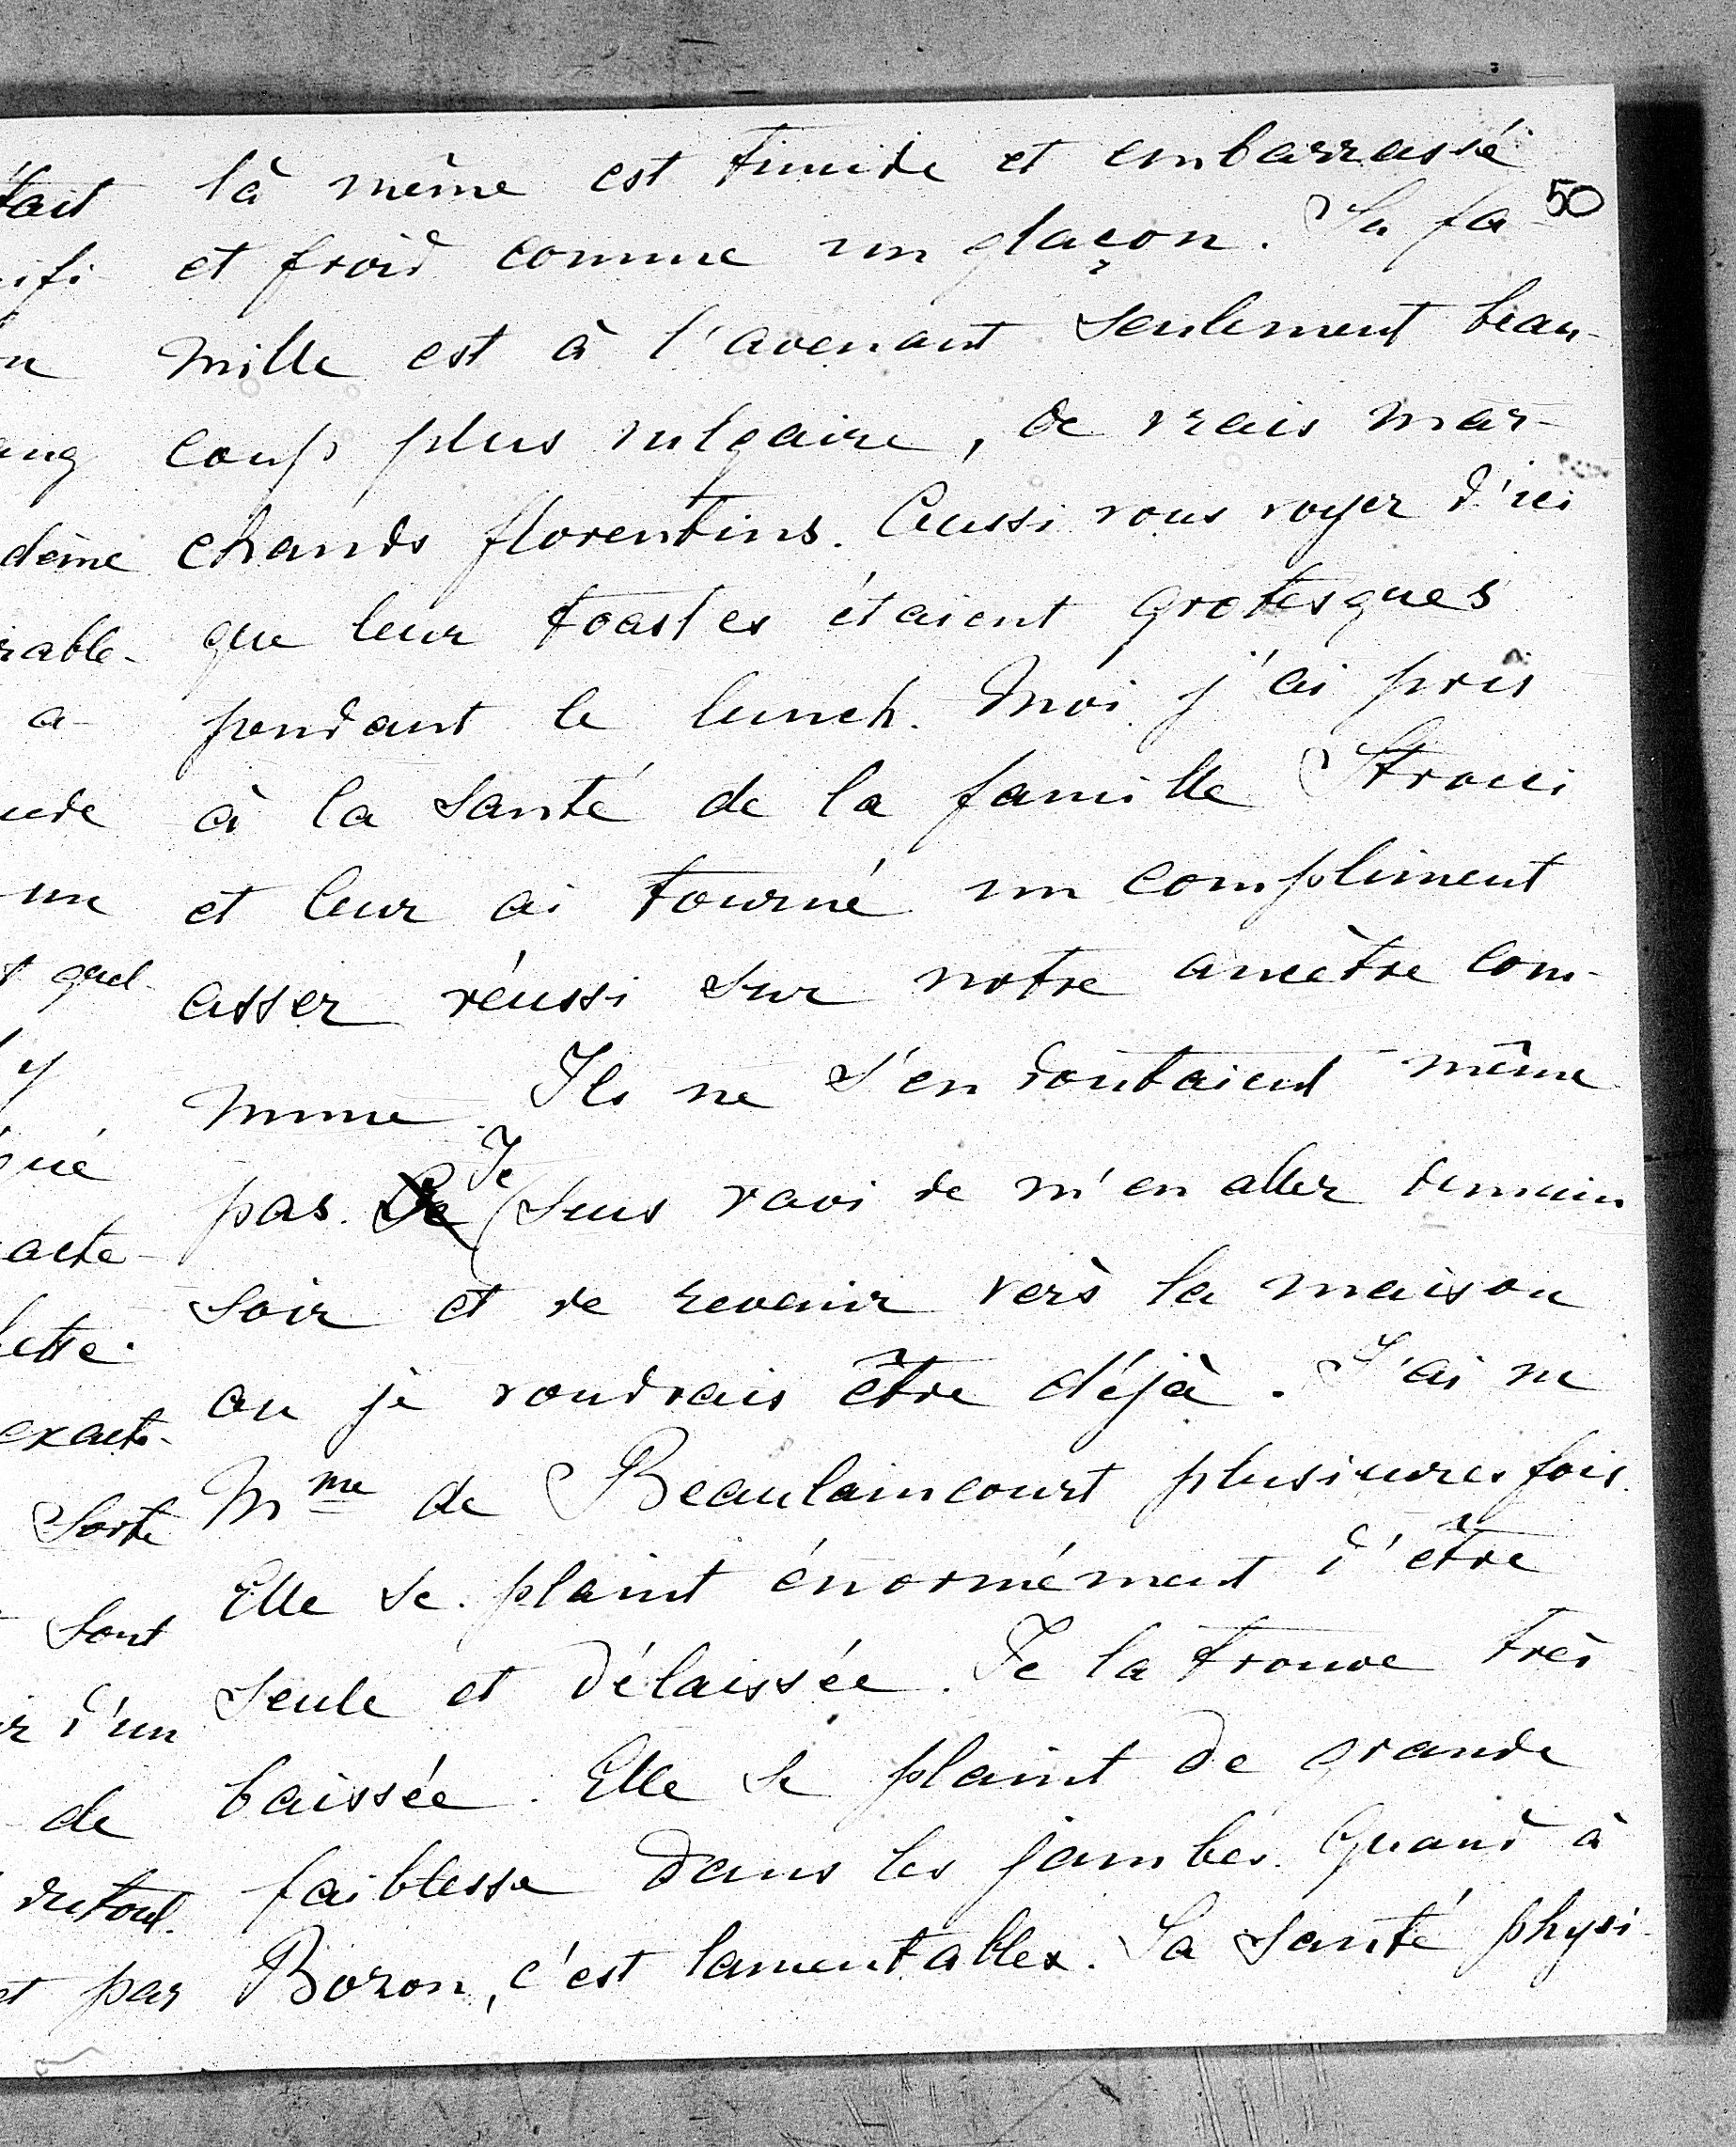 50
là même est timide et embarrassé
et froid comme un glaçon. Sa fa-
mille est à l'avenant seulement beau-
coup plus vulgaire, de vrais mar-
chands florentins. Aussi vous voyez d'ici
que leur toastes étaient grotesques
pendant le lunch. Moi j'ai pris
à la santé de la famille
et leur ai tourné un compliment
assez réussi sur notre ancêtre com-
mune. Ils ne s'en doutaient même
pas. Je suis ravi de m'en aller demain
soir et de revenir vers la maison
ou je voudrais être déjà. J'ai vu
Mme de Beaulaincourt plusieures fois.
Elle se plaint énormément d'être
seule et délaissée. Je la trouve très
baissée. Elle se plaint de grande
faiblesse dans les jambes. Quand à
Bozon, c'est lamentable. Sa santé physi-
tait
ifi
ang
dème
rable-
a-
un
quel-
y
acte-
exacte-
Sorte
sont
d'un
de
et par